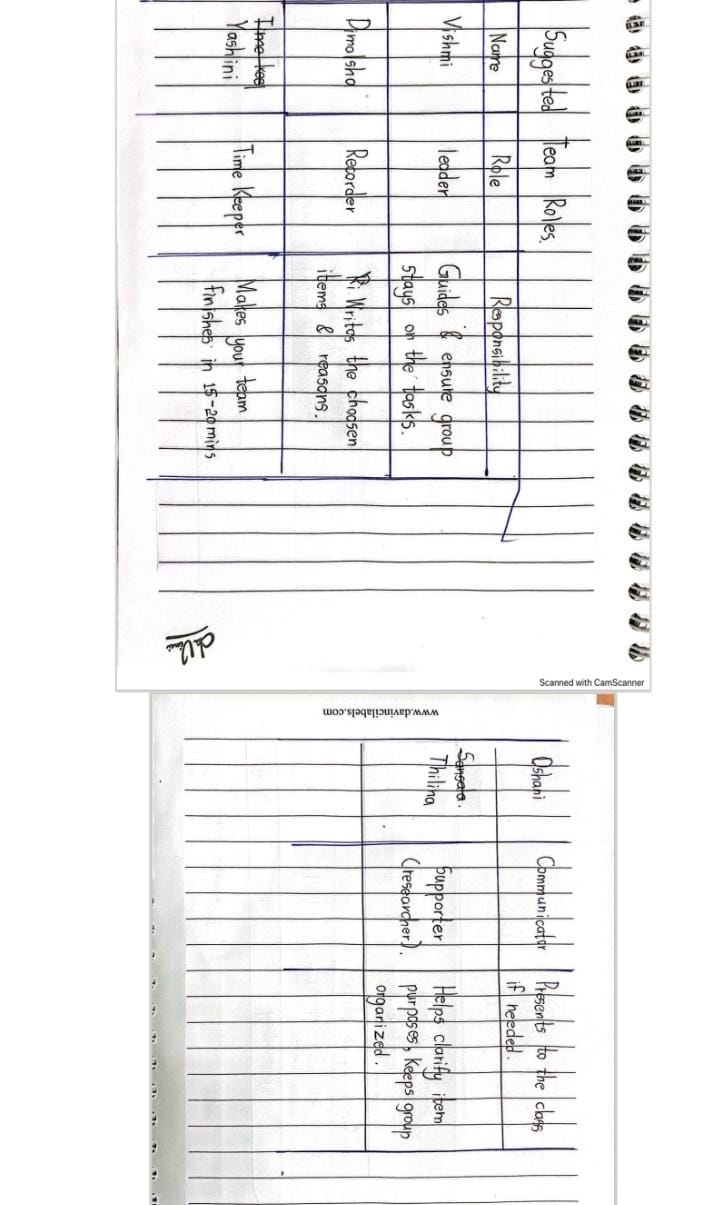 Suggested Team Roles.
Name Role Responsibility
Vishmi leader Guides & ensure group
stays on the tasks.
Dimalsha Recorder Writes the choosen
items & reasons.
Time kee
Yashini Time Keeper Makes your team
finishes in 15-20 mins
Scanned with CamScanner
www.davincilabels.com
Oshani Communicator Presents to the class
if needed.
Thilina Supporter Helps clarify item
(researcher). purposes, Keeps group
organized.